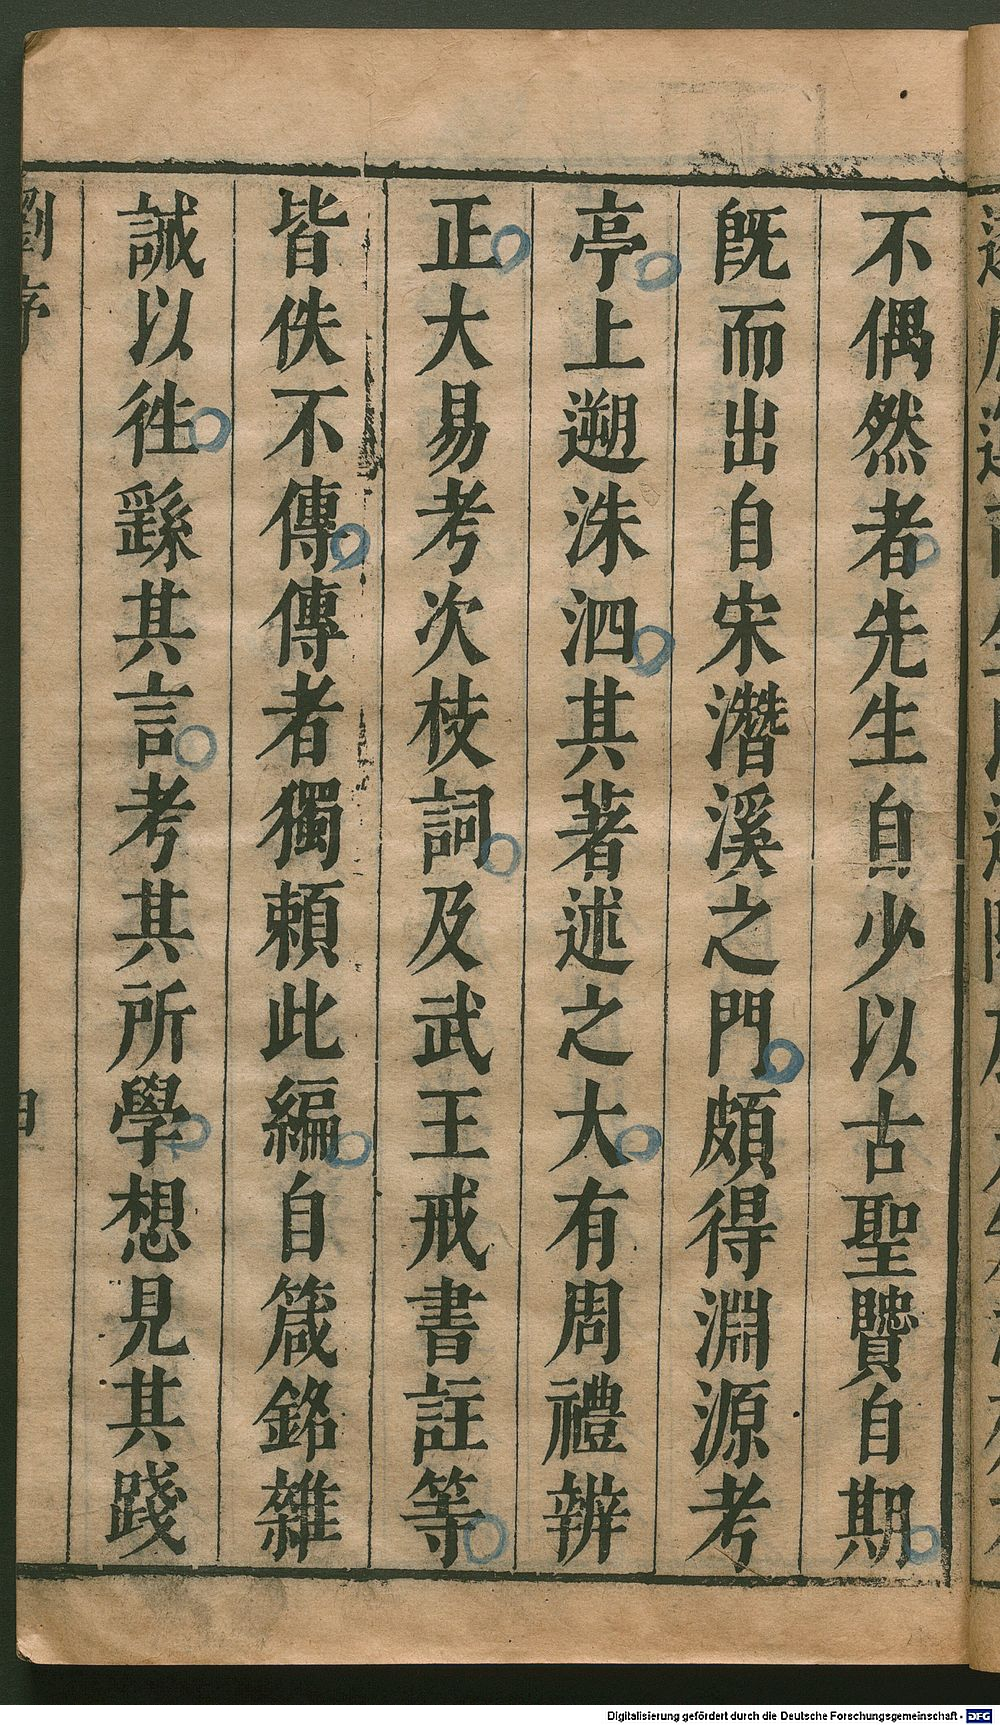 不偶然者先生自少以古聖贒自期
旣而出自宋濳溪之門頗得淵源考
亭上遡洙泗其著述之大有周禮辨
正大易考次枝詞及武王戒書註等
皆佚不傳傳者獨頼此編自箴銘雜
誡以徃繇其言考其所學想見其踐
劉序
Digitalisierung gefördert durch die Deutsche Forschungsgemeinschaft - DFG